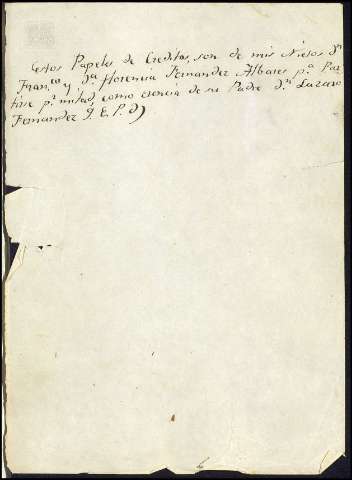 estos Papeles de Creditos, son de mis Nietos Dn
Franco y Da florencia Fernandez Albares pa Par
tirse pr mitad, como erencia de su Padre Dn Lazaro
Fernandez Q. E. P. D)